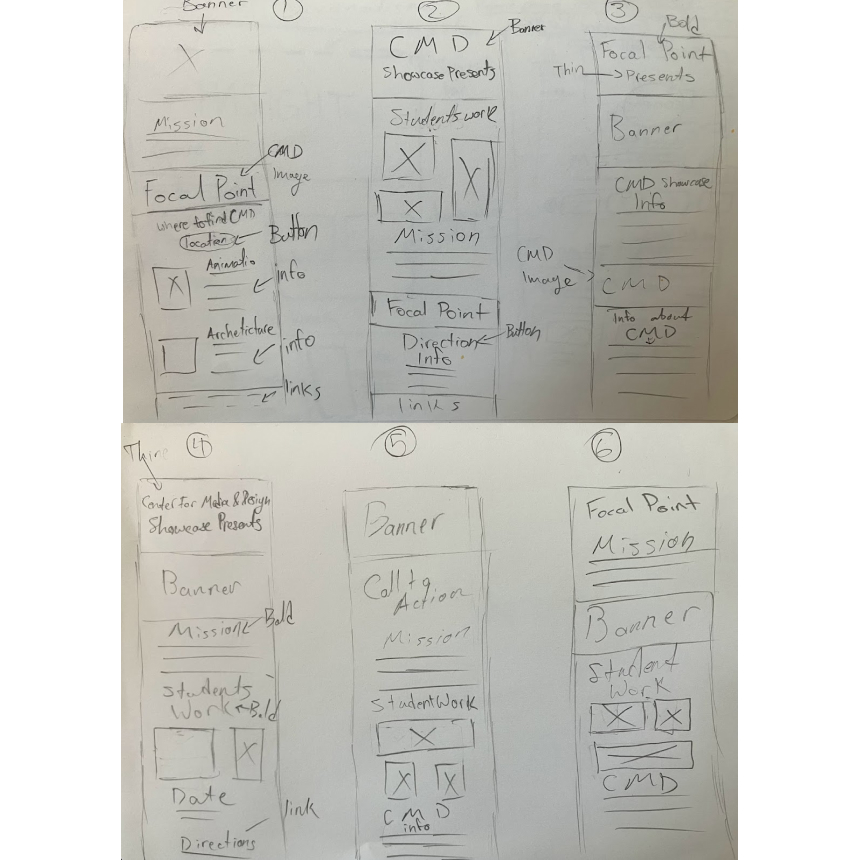 Banner
1
Mission
CMD
Image
Focal Point
where to find CMD
location
Button
Animatio
info
Archeticture
info
links
2
Banner
CMD
Showcase Presents
Students work
Mission
Focal Point
Direction
Info
Button
links
3
Bold
Focal Point
Thin
Presents
Banner
CMD Showcase
Info
CMD
Image
CMD
Info about
CMD
4
Thin
Center for Media & Design
Showcase Presents
Banner
Mission
Bold
Students
Work
Bold
Date
link
Directions
5
Banner
Call to
Action
Mission
Student Work
CMD
info
6
Focal Point
Mission
Banner
Student
Work
CMD